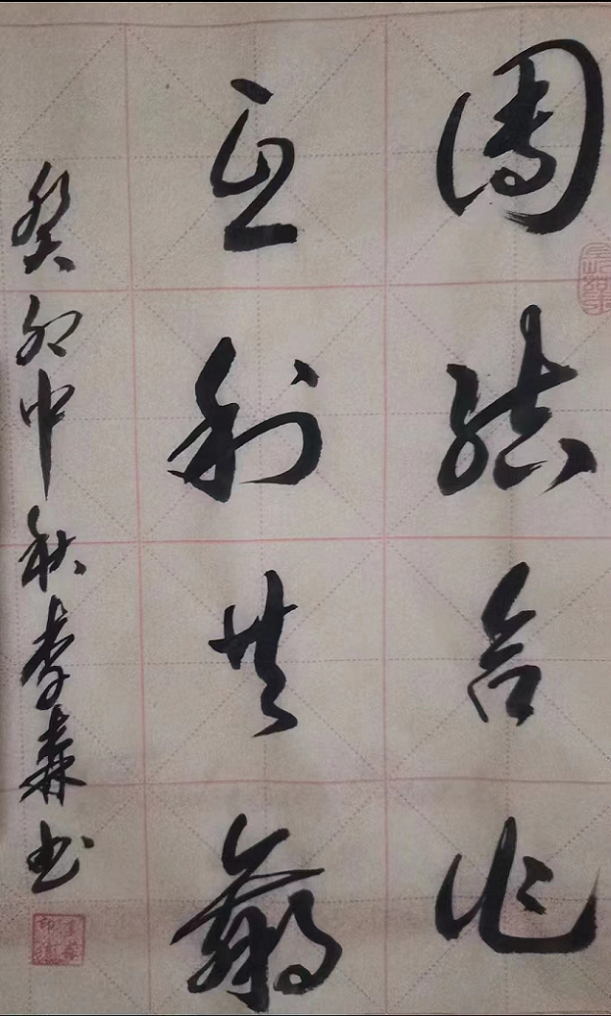 團結合作
互利共贏
癸卯中秋李森书